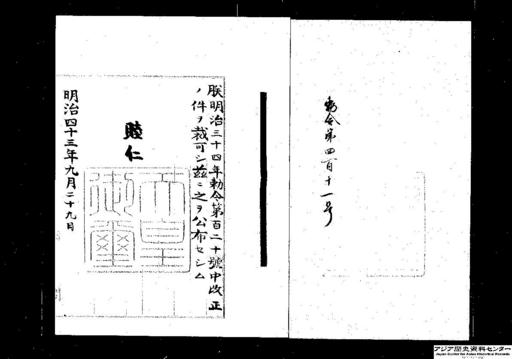 勅令第四百十一号
朕明治三十四年勅令第百二十號中改正
ノ件ヲ裁可シ茲ニ之ヲ公布セシム
睦仁
天皇御璽
明治四十三年九月二十九日
アジア歴史資料センター
Japan Center for Asian Historical Records